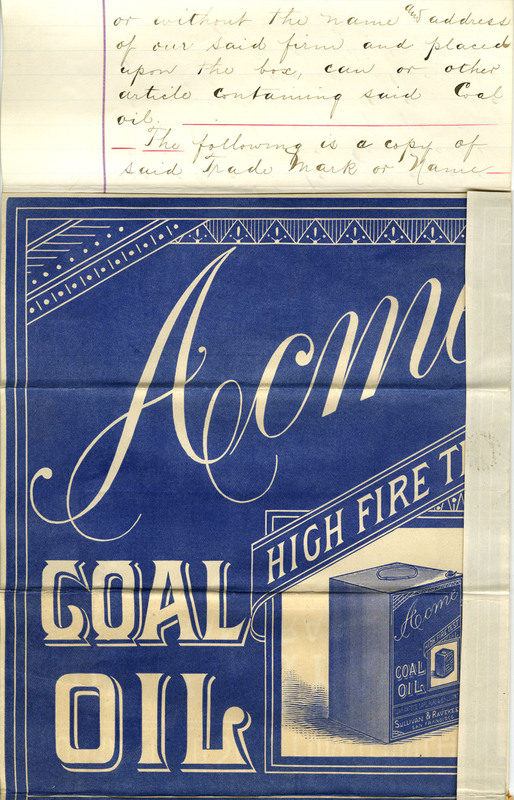 or without the name and address
of our said firm and placed
upon the box, can or other
article containing said Coal
oil.
The following is a copy of
said Trade Mark or Name
Acme
HIGH FIRE T
COAL
OIL
Acme
HIGH FIRE TEST
COAL
OIL
SULLIVAN & RAVEKES
SAN FRANCISCO